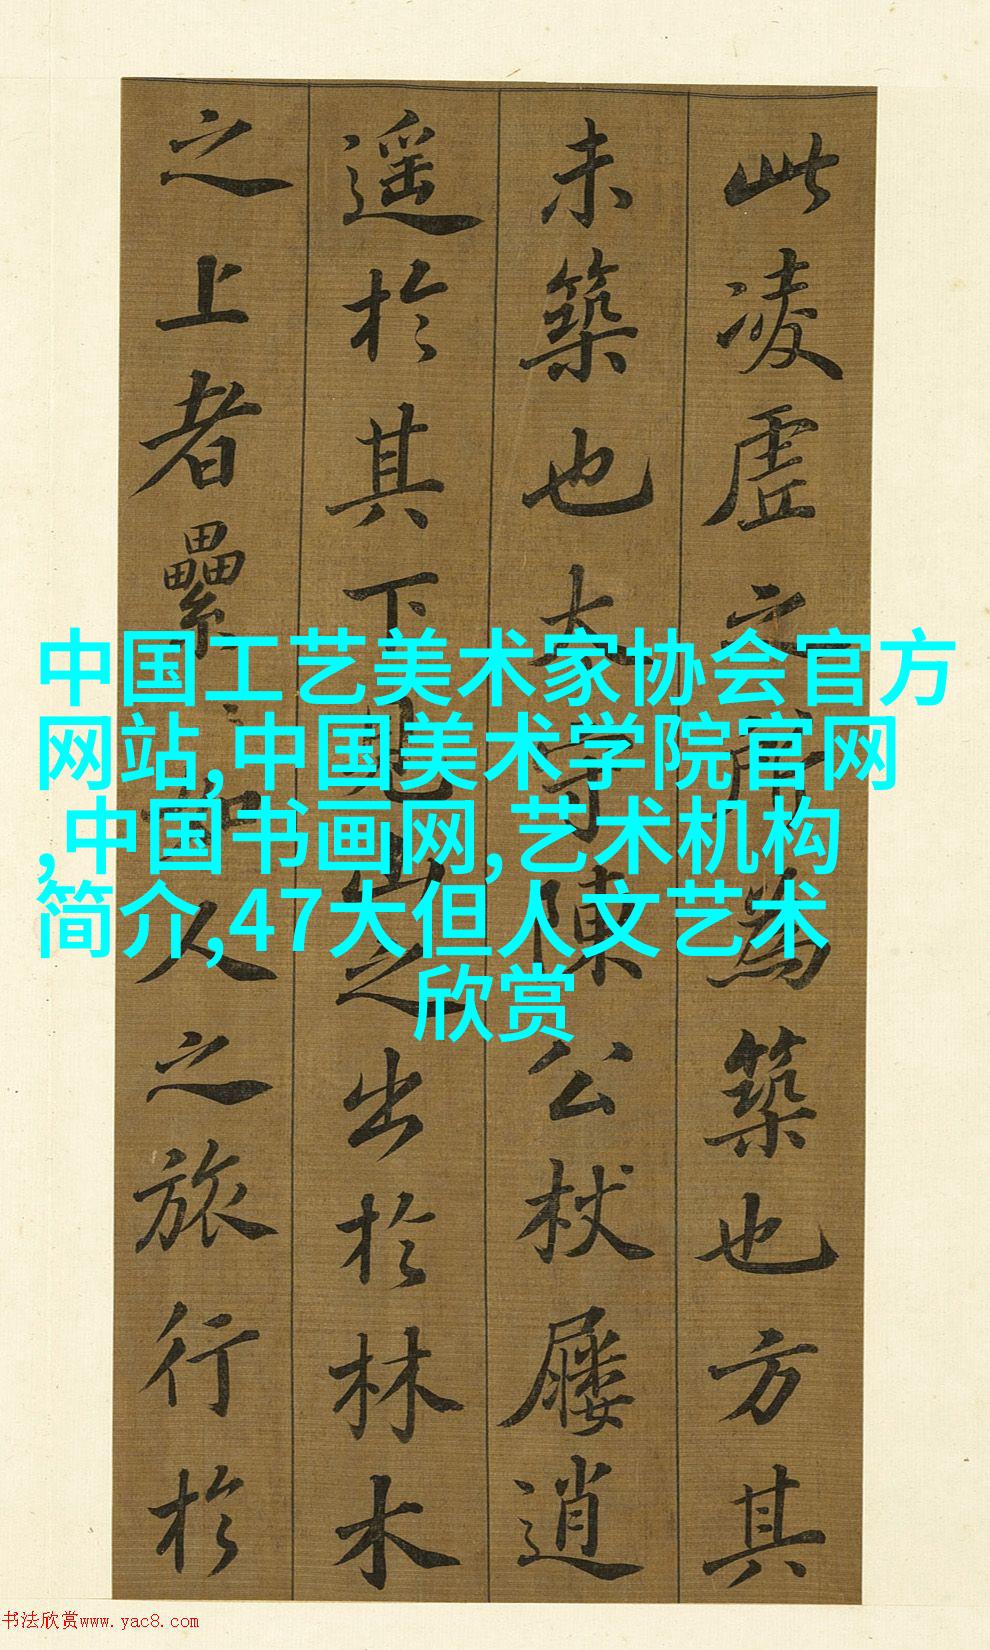 此凌虗之所為築也方其
未築也大守陳公杖屨逍
遥於其下見山之出於林木
之上者纍〻如人之旅行於
中国工艺美术家协会官方
网站,中国美术学院官网
,中国书画网,艺术机构
简介,47大但人文艺术
欣赏
书法欣赏www.yac8.com